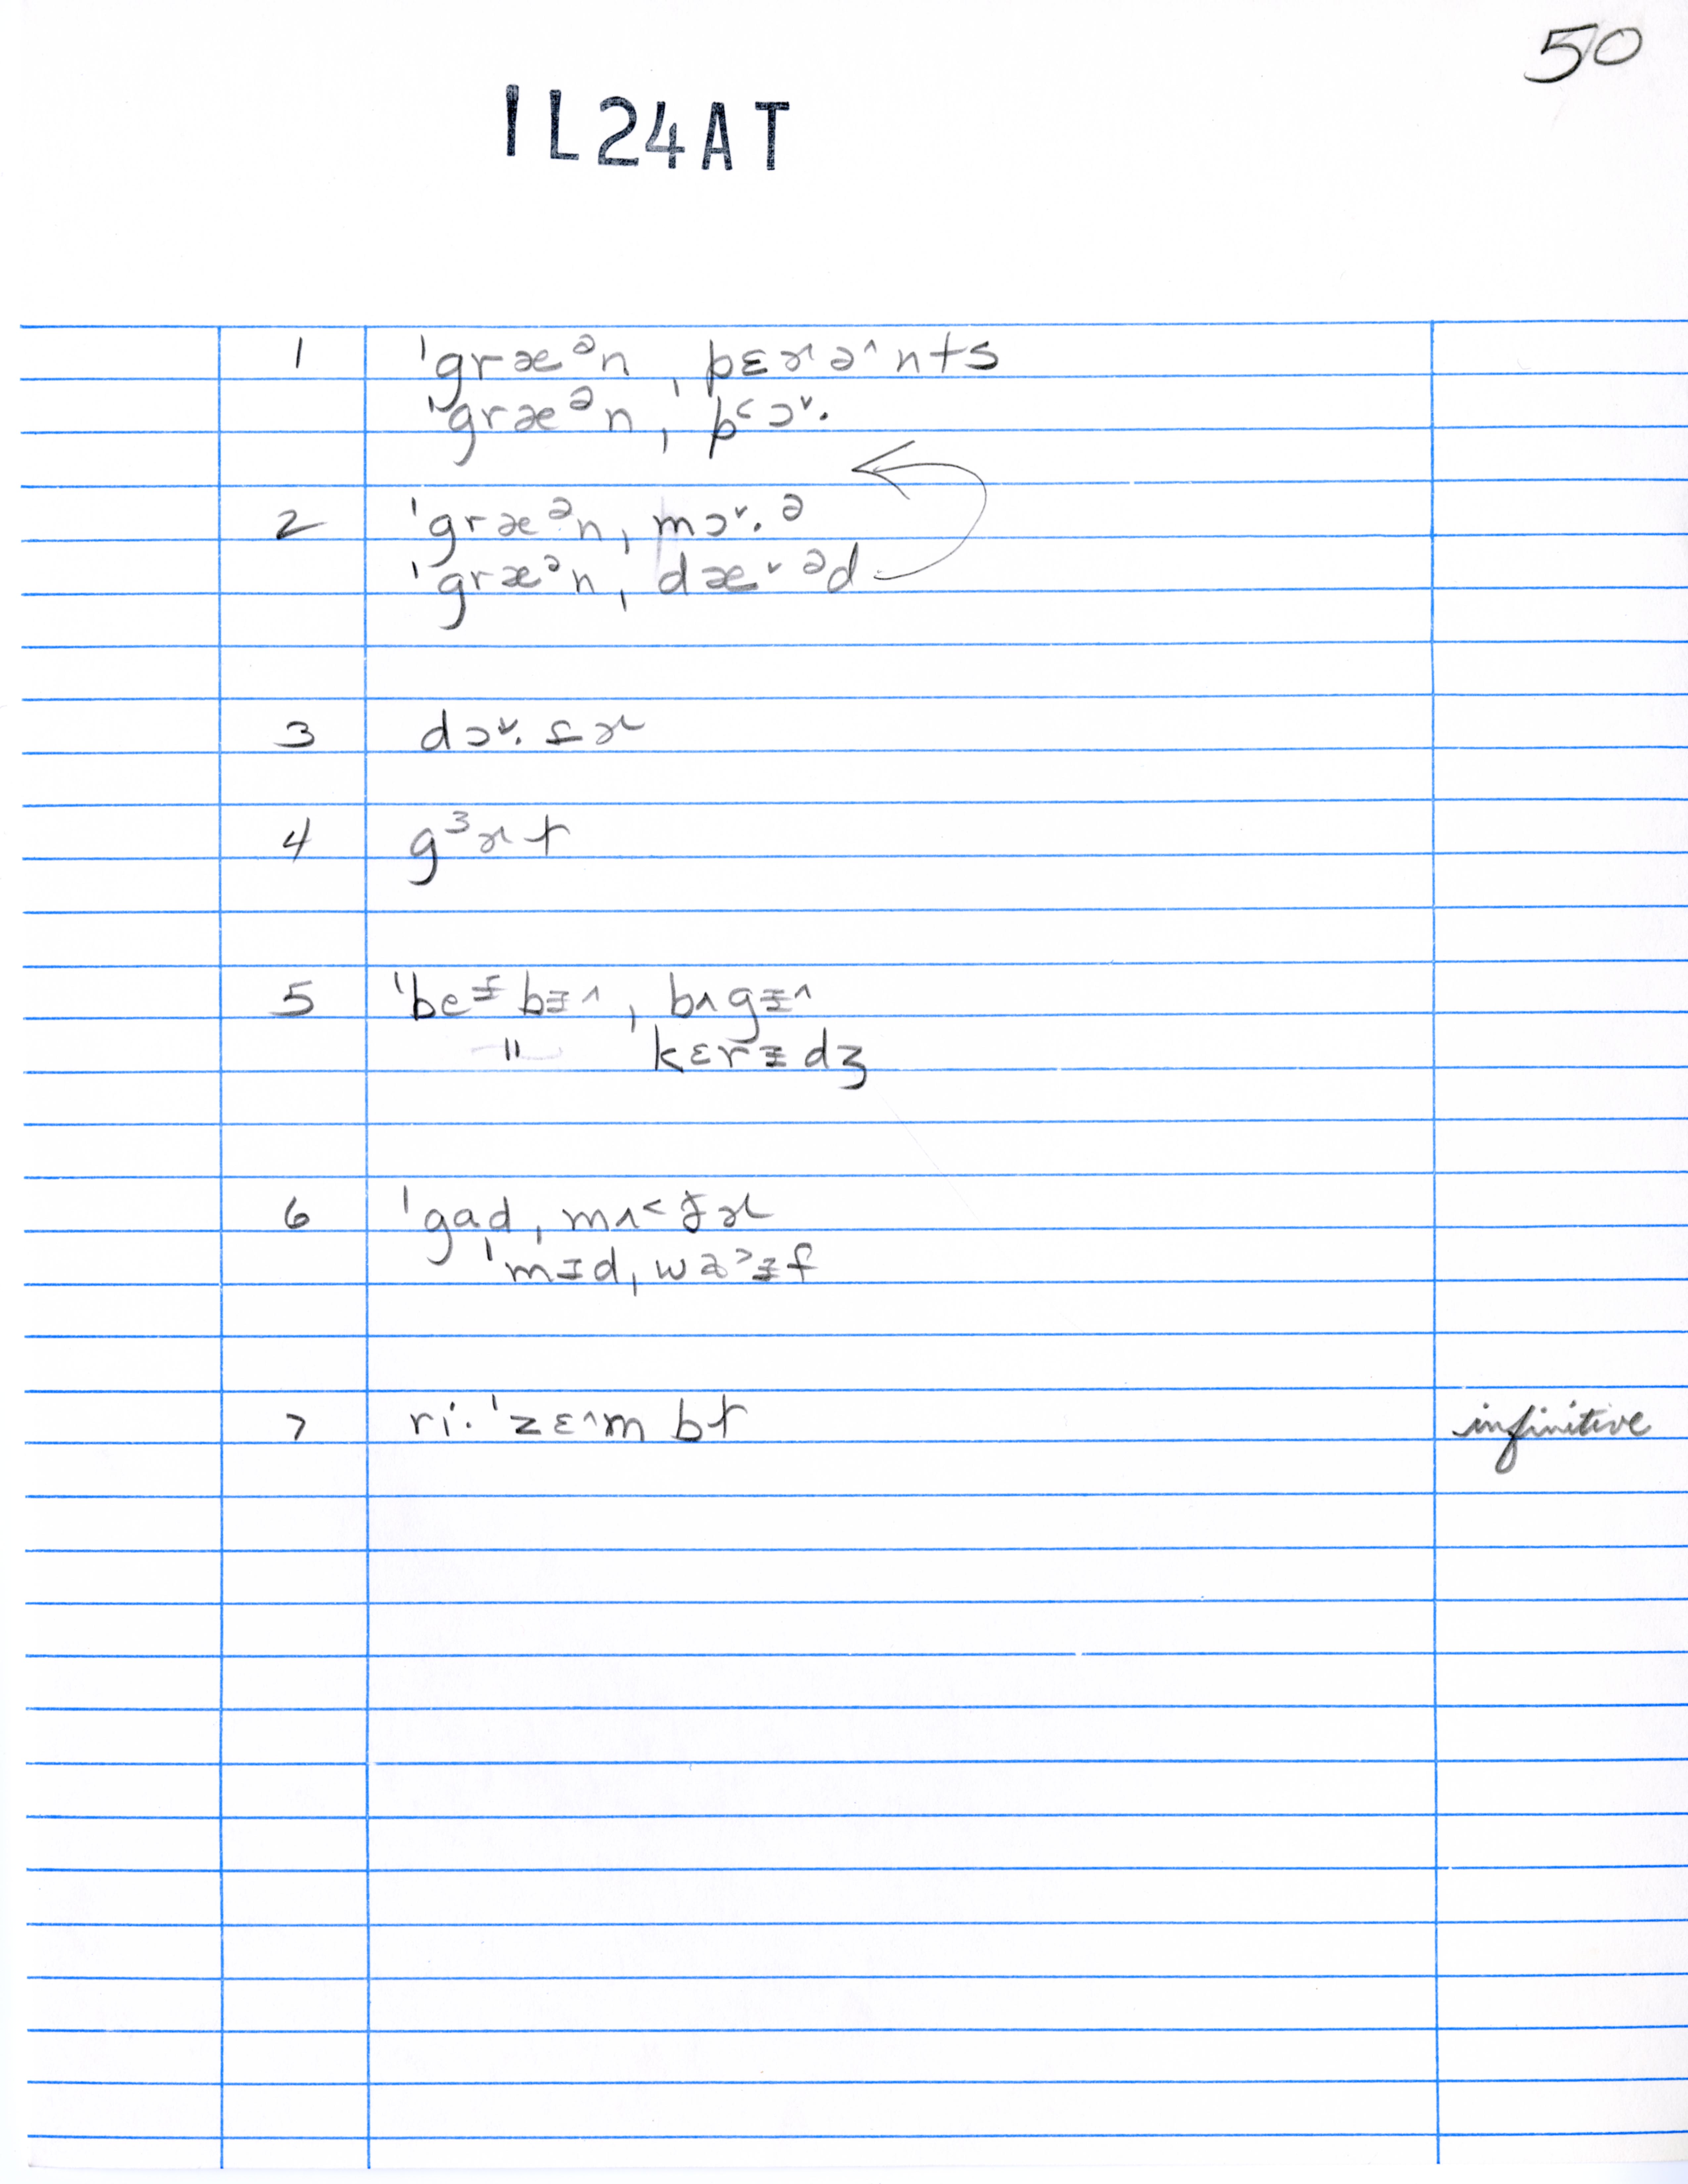 50
IL24AT
1 ˈgræᵊnˌpɛɚə^nts
ˈgræᵊnˌp˂ɔ˅·
2 ˈgræᵊnˌmɔ˅·ə
ˈgræᵊnˌdæ˅ᵊd
3 dɔ˅·ɾɚ
4 gᶟɚt
5 ˈbeᵻbᵻ^ˌbʌgᵻ^
" kɛrᵻdʒ
6 ˈgadˌmʌ˂ðɚ
ˈmᵻdˌwa˃ᵻf
7 ri·ˈzɛ^mbɫ infinitive